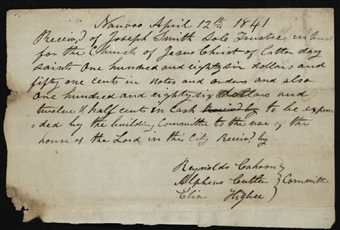 Nauvoo April 12th 1841
Receivd of Joseph Smith Sole Trustee in trust
for the Church of Jesus Christ of Latter day
saints One hundred and eighty six dollars and
fifty one cents in Notes and Orders and also
One hundred and eighty six dollars and
twelve & half cents in Cash to be expen
ded by the building Committee to the use of the
house of the Lord in this City Receivd by
Reynolds Cahoon
Alpheus Cutler } Committee
Elias Higbee